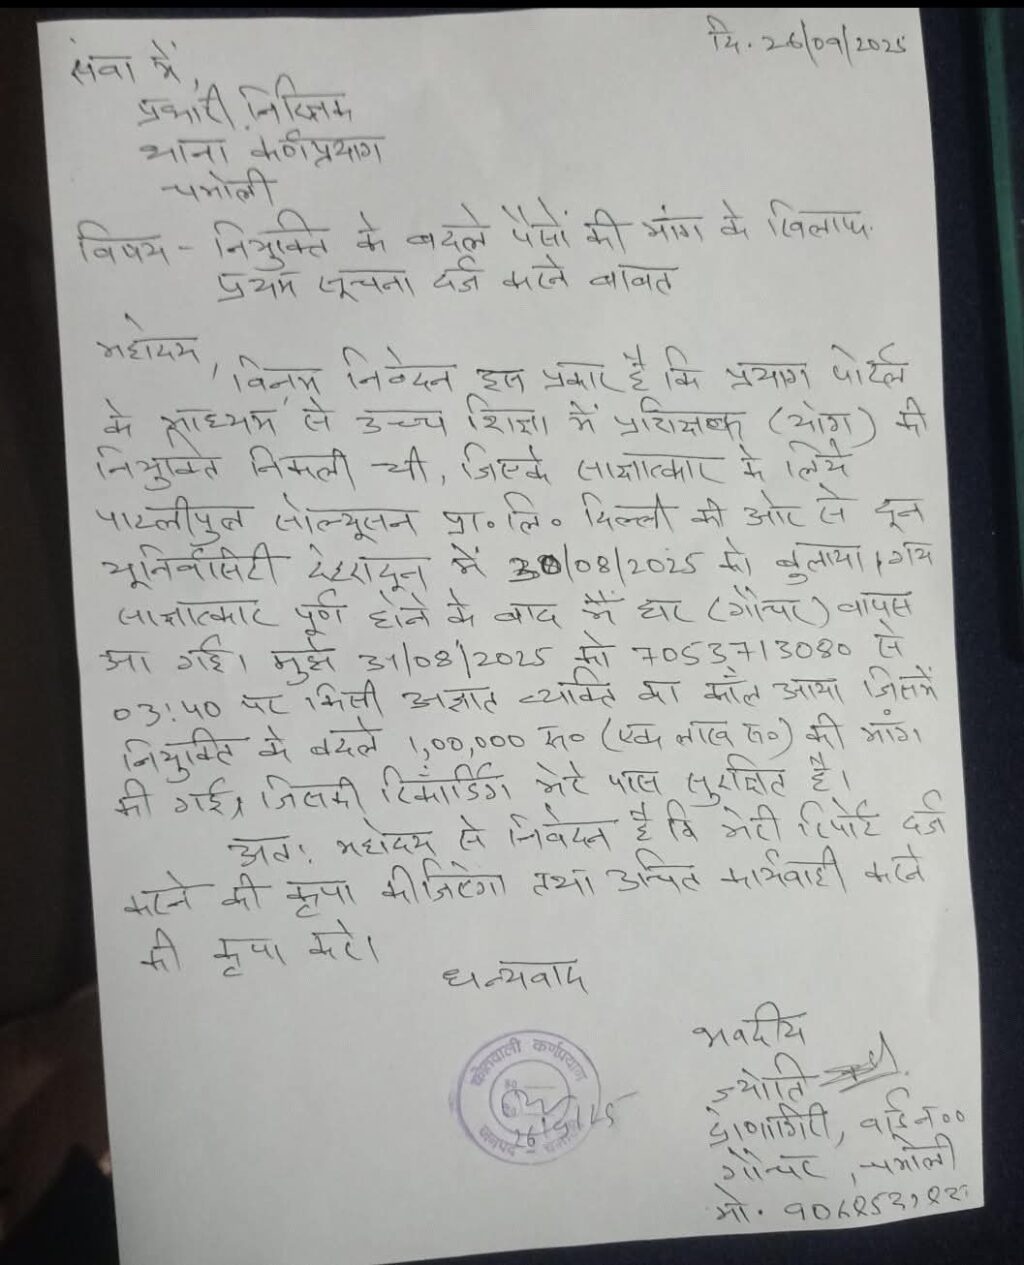 दि. 26/09/2025
सेवा में,
प्रभारी निरिक्षक
थाना कर्णप्रयाग
चमोली
विषय - नियुक्ति के बदले पैसों की मांग के खिलाफ
प्रथम सूचना दर्ज करने बावत
महोदय,
विनम्र निवेदन इस प्रकार है कि प्रयाग पोर्टल
के माध्यम से उच्च शिक्षा में प्रशिक्षक (योग) की
नियुक्ति निकली थी, जिसके साक्षात्कार के लिये
पाटलीपुत्र सोल्यूसन प्रा॰ लि॰ दिल्ली की ओर से दून
यूनिर्वासिटी देहरादून में 30/08/2025 को बुलाया गया
साक्षात्कार पूर्ण होने के बाद मैं घर (गौचर) वापस
आ गई। मुझे 31/08/2025 को 7053713080 से
03:40 पर किसी अज्ञात व्यक्ति का कॉल आया जिसमें
नियुक्ति के बदले 1,00,000 रू॰ (एक लाख रु॰) की मांग
की गई, जिसकी रिकॉर्डिंग मेरे पास सुरक्षित है।
अतः महोदय से निवेदन है कि मेरी रिपोर्ट दर्ज
करने की कृपा कीजिएगा तथा उचित कार्यवाही करने
की कृपा करे।
धन्यवाद
भवदीय
ज्योति
द्रोणागिरी, वार्ड न॰
गौचर, चमोली
मो.
कोतवाली कर्णप्रयाग
जनपद
26/9/25